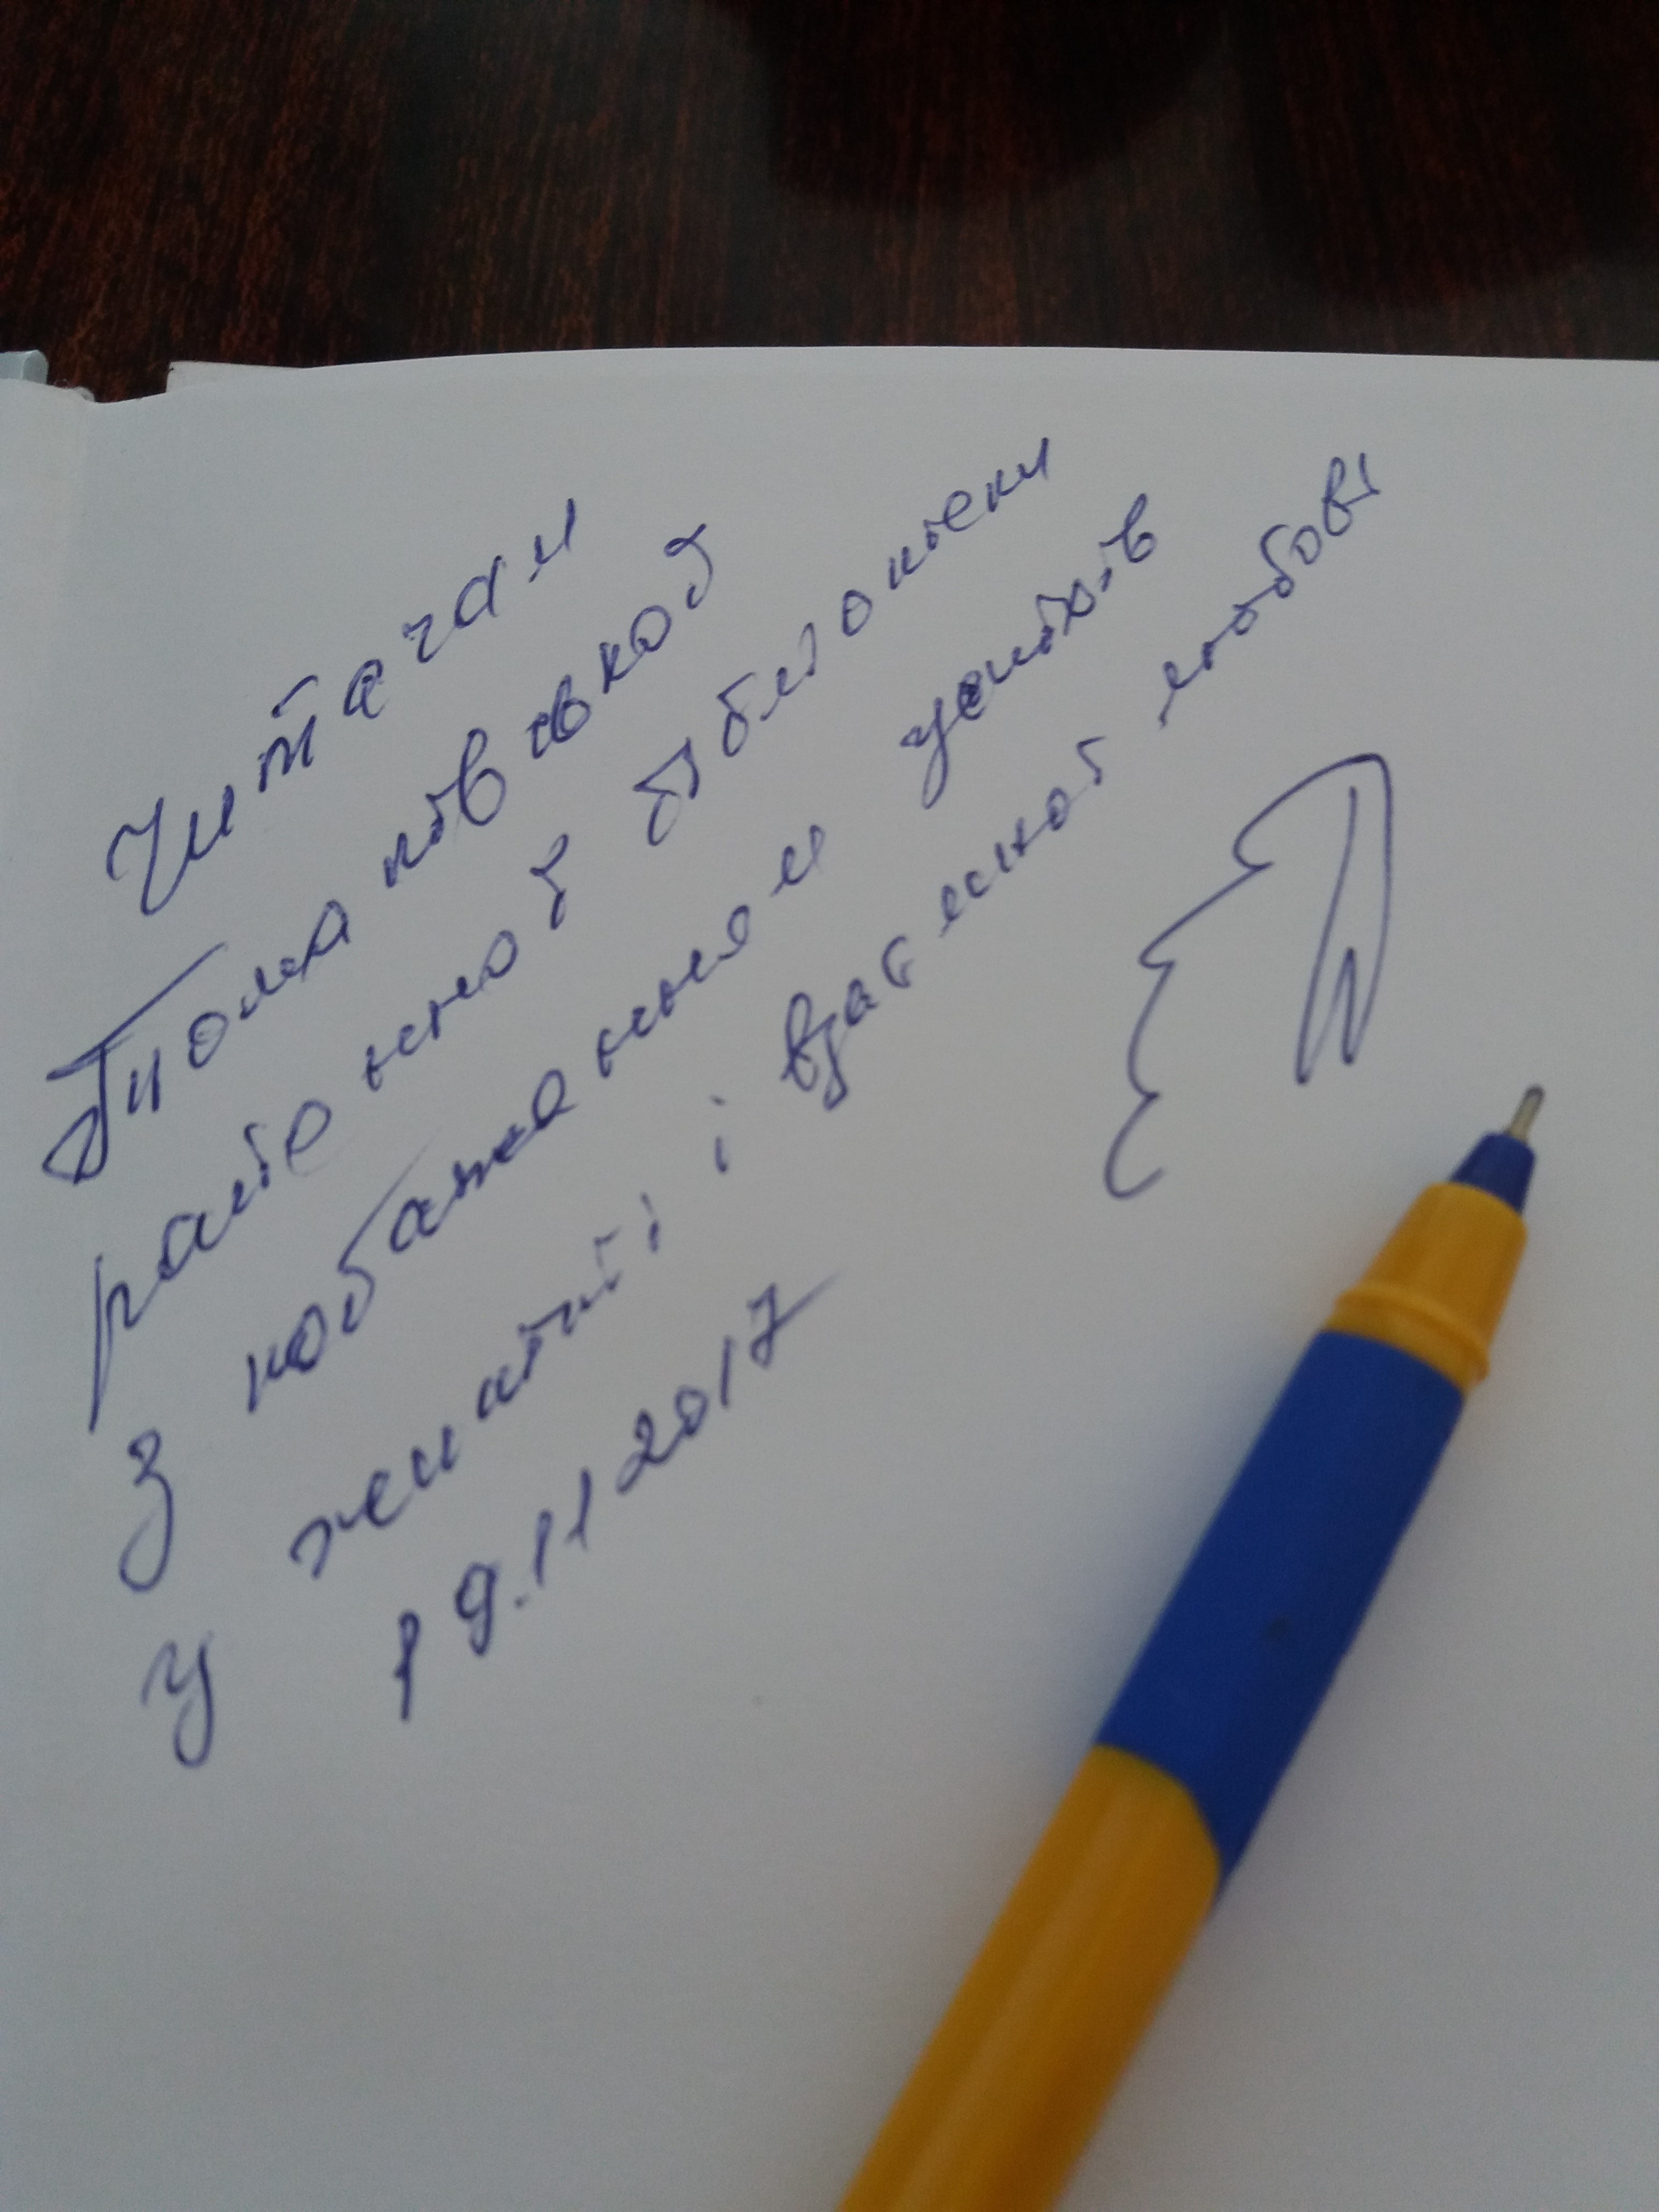 Читачам
Тиманівської
районної бібліотеки
з побажаннями успіхів
у житті і взаємної любові
19.11 2017